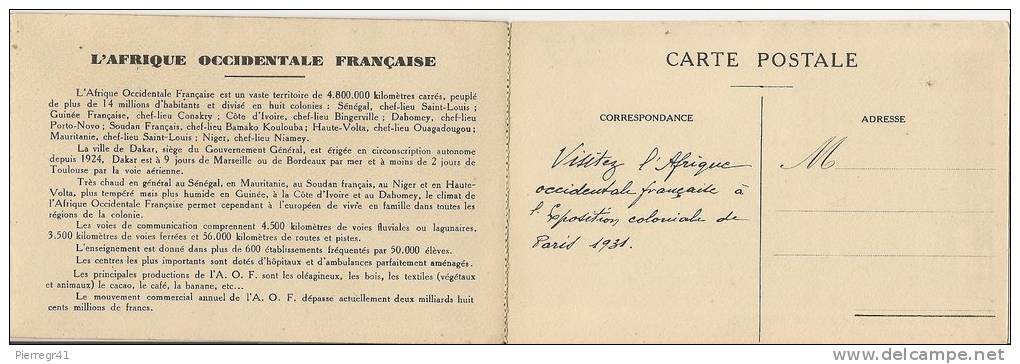 L'AFRIQUE OCCIDENTALE FRANÇAISE
L'Afrique Occidentale Française est un vaste territoire de 4.800.000 kilomètres carrés, peuplé
de plus de 14 millions d'habitants et divisé en huit colonies : Sénégal, chef-lieu Saint-Louis ;
Guinée Française, chef-lieu Conakry ; Côte d'Ivoire, chef-lieu Bingerville ; Dahomey, chef-lieu
Porto-Novo ; Soudan Français, chef-lieu Bamako Koulouba ; Haute-Volta, chef-lieu Ouagadougou ;
Mauritanie, chef-lieu Saint-Louis ; Niger, chef-lieu Niamey.
La ville de Dakar, siège du Gouvernement Général, est érigée en circonscription autonome
depuis 1924, Dakar est à 9 jours de Marseille ou de Bordeaux par mer et à moins de 2 jours de
Toulouse par la voie aérienne.
Très chaud en général au Sénégal, en Mauritanie, au Soudan français, au Niger et en Haute-
Volta, plus tempéré mais plus humide en Guinée, à la Côte d'Ivoire et au Dahomey, le climat de
l'Afrique Occidentale Française permet cependant à l'européen de vivre en famille dans toutes les
régions de la colonie.
Les voies de communication comprennent 4.500 kilomètres de voies fluviales ou lagunaires,
3.500 kilomètres de voies ferrées et 56.000 kilomètres de routes et pistes.
L'enseignement est donné dans plus de 600 établissements fréquentés par 50.000 élèves.
Les centres les plus importants sont dotés d'hôpitaux et d'ambulances parfaitement aménagés.
Les principales productions de l'A. O. F. sont les oléagineux, les bois, les textiles (végétaux
et animaux) le cacao, le café, la banane, etc...
Le mouvement commercial annuel de l'A. O. F. dépasse actuellement deux milliards huit
cents millions de francs.
CARTE POSTALE
CORRESPONDANCE
ADRESSE
Visitez l'Afrique
occidentale française à
l'Exposition coloniale de
Paris 1931.
M
Pierregr41
delcampe.net